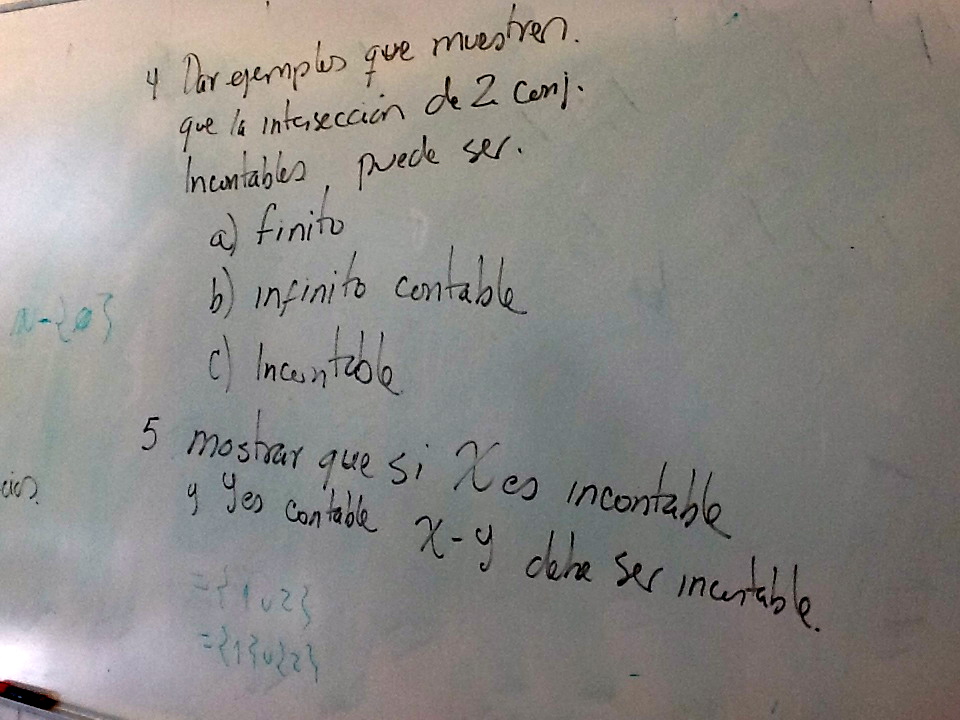 4 Dar ejemplos que muestren.
que la intersección de 2 conj.
Incontables, puede ser.
a) finito
b) infinito contable
c) Incontable
5 mostrar que si X es incontable
y Y es contable X-Y debe ser incontable.
={1∪2}
={1}∪{2}